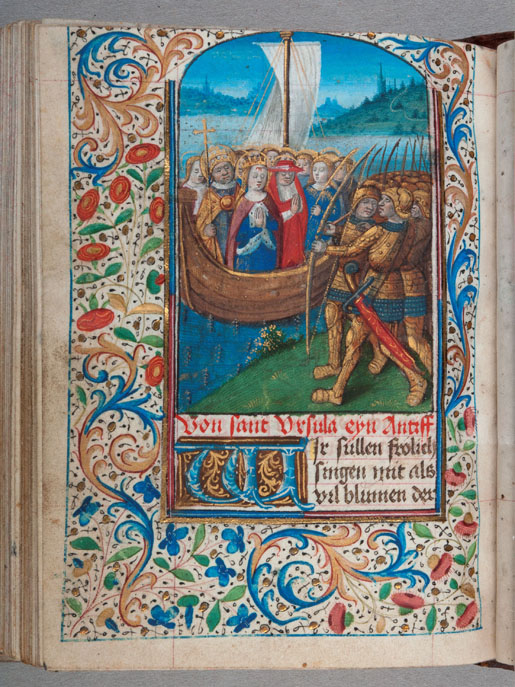 Von sant Ursula eyn Antiff
Wir sullen frolich
singen mit als
vil blumen der